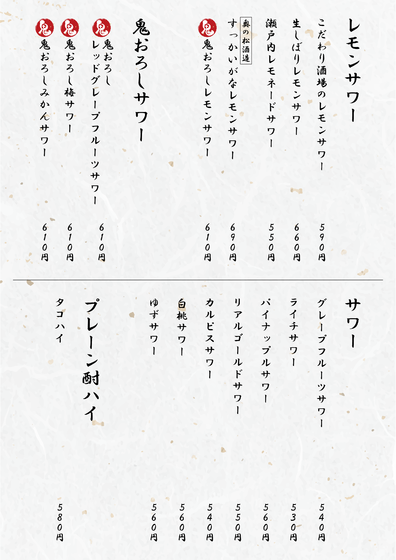 レモンサワー
こだわり酒場のレモンサワー 590円
生しぼりレモンサワー 660円
瀬戸内レモネードサワー 550円
奥の松酒造
すっかいがなレモンサワー 690円
鬼 鬼おろしレモンサワー 610円
鬼おろしサワー
鬼 鬼おろし
レッドグレープフルーツサワー 610円
鬼 鬼おろし梅サワー 610円
鬼 鬼おろしみかんサワー 610円
サワー
グレープフルーツサワー 540円
ライチサワー 530円
パイナップルサワー 560円
リアルゴールドサワー 550円
カルピスサワー 540円
白桃サワー 560円
ゆずサワー 560円
プレーン酎ハイ
タコハイ 580円